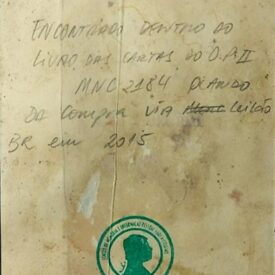 ENCONTRADO DENTRO DO
LIVRO DAS CARTAS DO D.P.II
MNC 2184 QUANDO
DA COMPRA VIA LEILÃO
BR em 2015